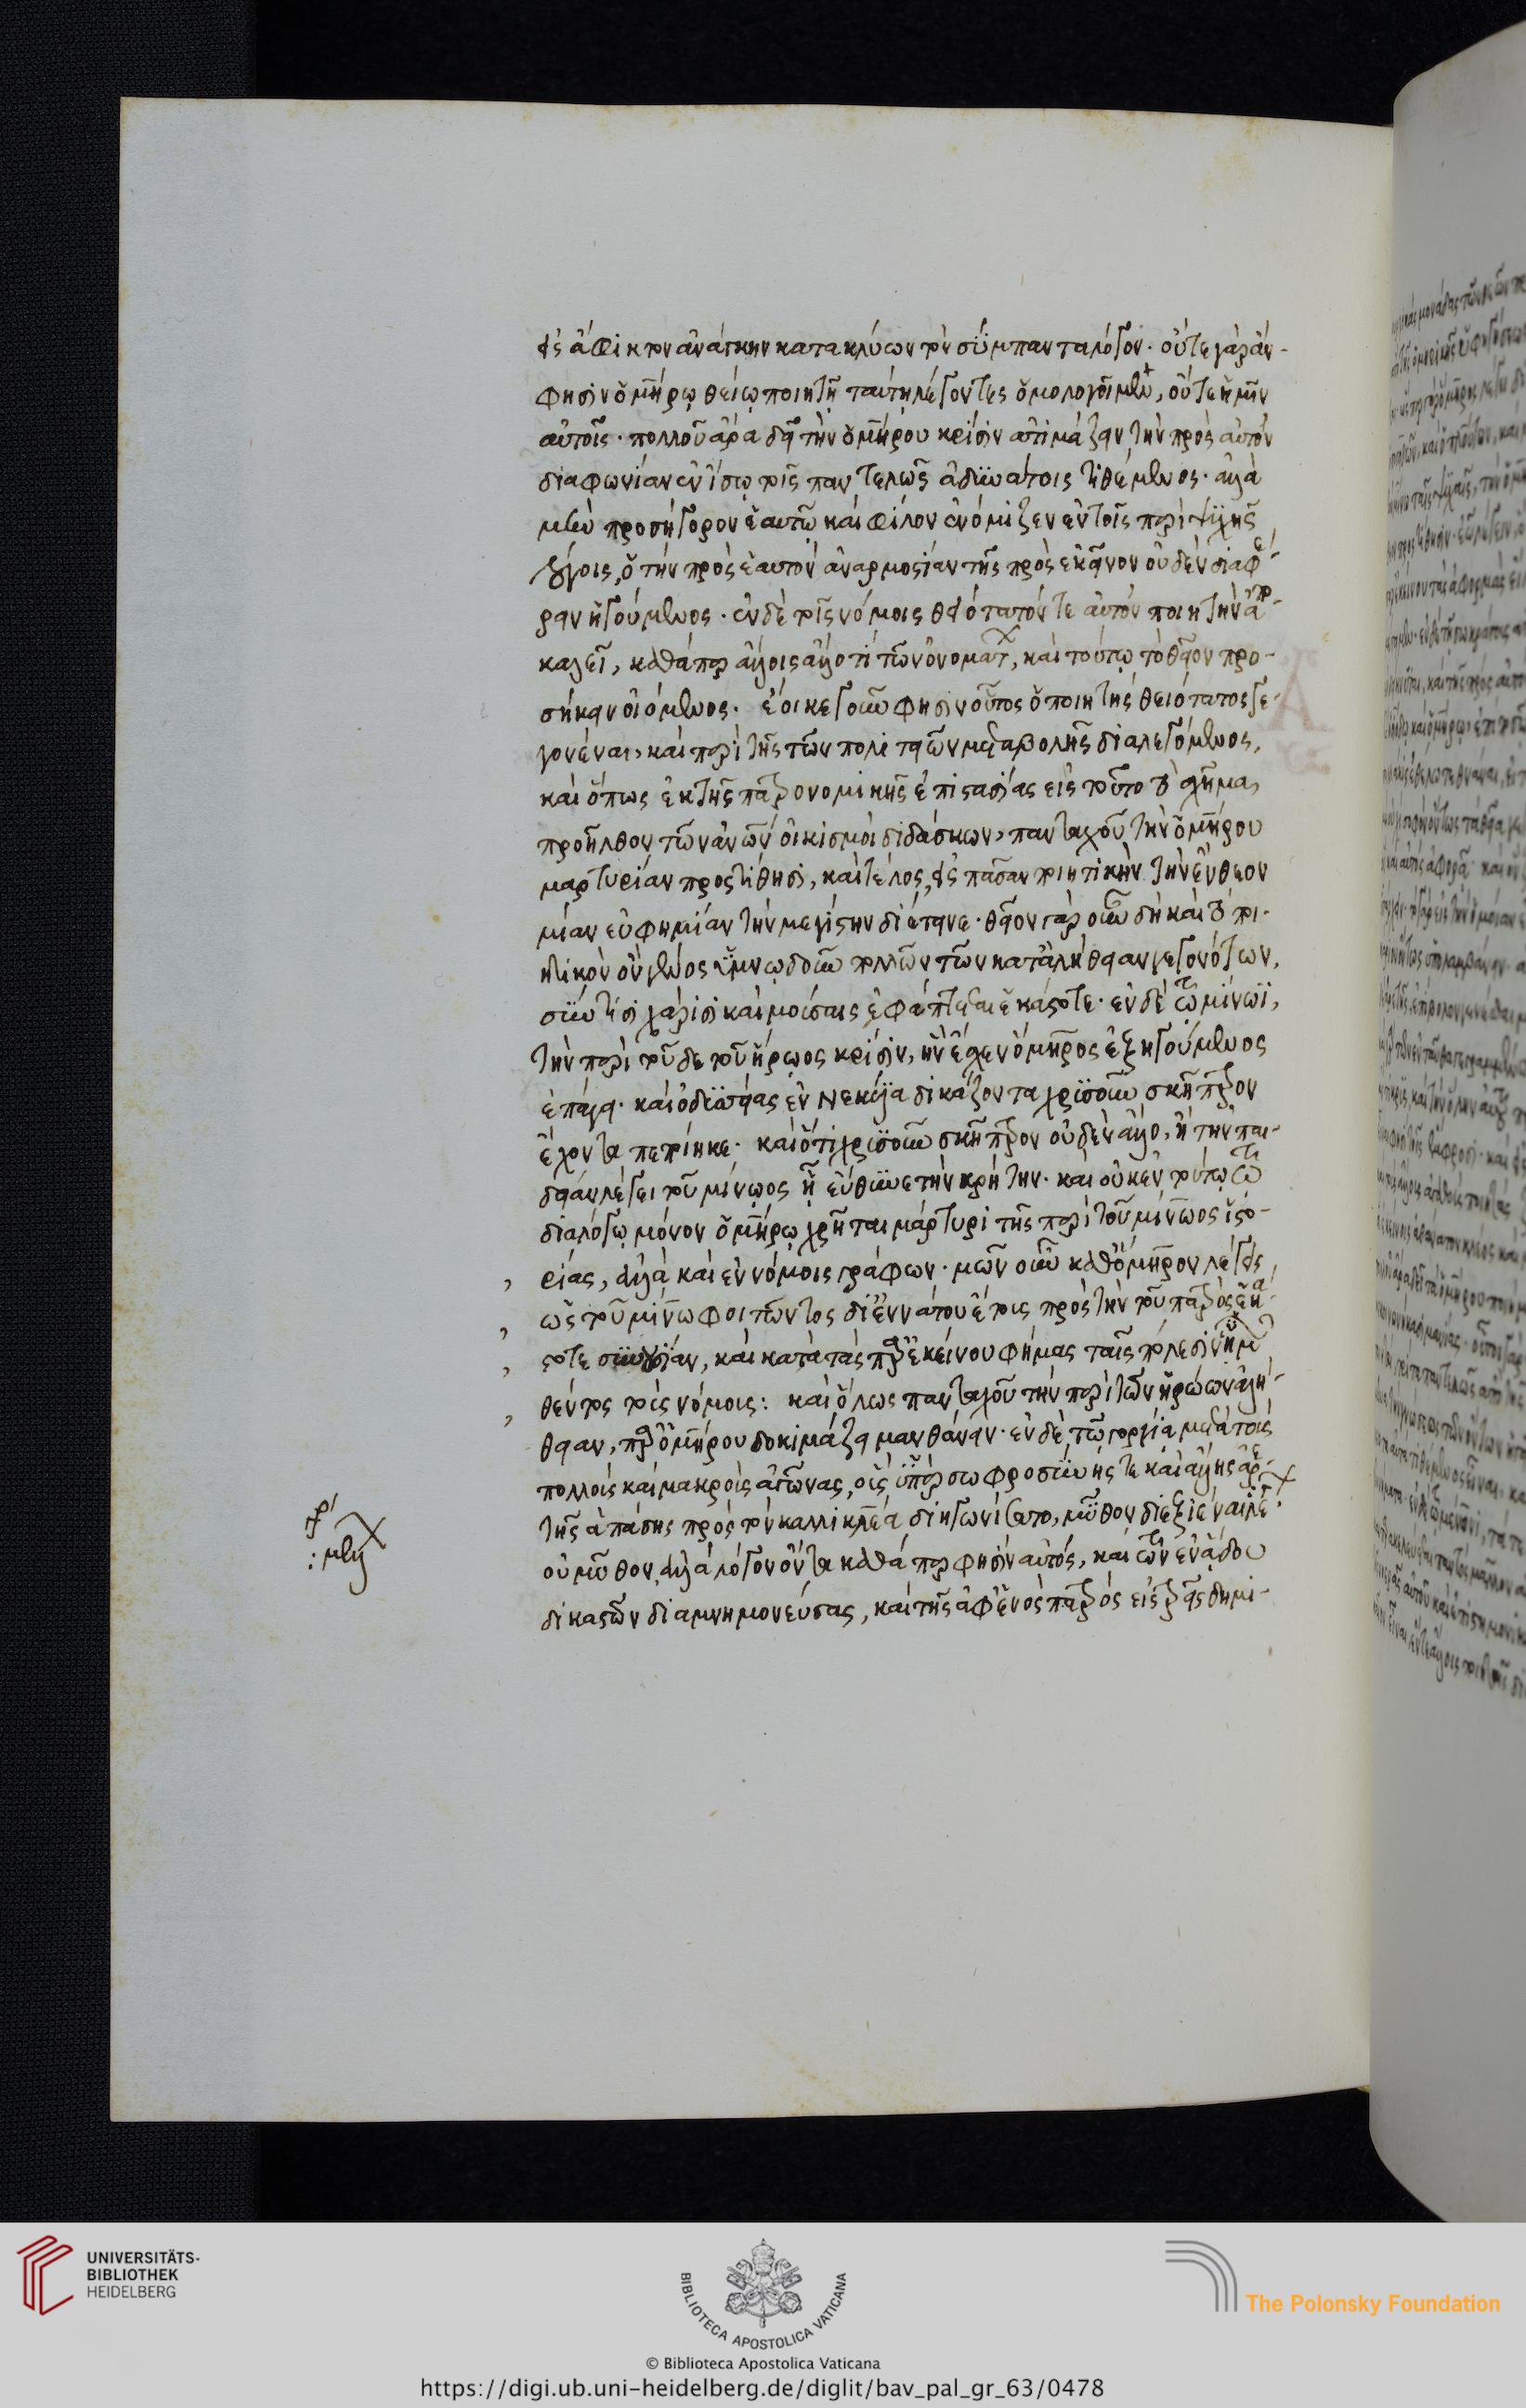 εἰς ἄφικτον ἀνάγκην κατακλύων τὸν σύμπαντα λόγον. οὔτε γὰρ ἂν
φησὶν ὁμήρῳ θείῳ ποιητῇ ταύτῃ λέγοντες ὁμολογοῖμεν, οὔτε ἡμῖν
αὐτοῖς. πολλοῦ ἄρα δεῖ τὴν ὁμήρου κρίσιν ἀτιμάζειν τὴν πρὸς αὐτὸν
διαφωνίαν ἐν ἴσῳ τοῖς παντελῶς ἀδυνάτοις τιθέμενος. ἀλλὰ
μὲν προσήγορον ἑαυτῷ καὶ φίλον ἐνόμιζεν ἐν τοῖς περὶ ψυχῆς
λόγοις, ὁ τὴν πρὸς ἑαυτὸν ἀναρμοστίαν τῆς πρὸς ἐκεῖνον οὐδὲν διαφέ-
ρειν ἡγούμενος. ἐν δὲ τοῖς νόμοις θειότατόν τε αὐτὸν ποιητὴν ἀπο-
καλεῖ, καθάπερ ἄλλοις ἄλλο τί τῶν ὀνομάτων, καὶ τούτῳ τὸ θεῖον προ-
σήκειν οἰόμενος. ἔοικε γοῦν φησὶν οὗτος ὁ ποιητὴς θειότατος γε-
γονέναι, καὶ περὶ τῆς τῶν πολιτειῶν μεταβολῆς διαλεγόμενος,
καὶ ὅπως ἐκ τῆς πατρονομικῆς ἐπιστασίας εἰς τοῦτο τὸ σχῆμα
προῆλθον τῶν ἀνῶν οἰκισμοὶ διδάσκων, πανταχοῦ τὴν ὁμήρου
μαρτυρίαν προστίθησι, καὶ τέλος, εἰς πᾶσαν ποιητικὴν τὴν ἔνθεον
μίαν εὐφημίαν τὴν μεγίστην διέτεινε. θεῖον γὰρ οὖν δὴ καὶ τὸ ποι-
ητικὸν ὂν γένος ὑμνῳδοῦν πολλῶν τῶν κατ' ἀλήθειαν γεγονότων,
σύν τισι χάρισι καὶ μούσαις ἐφάπτεται ἑκάστοτε. ἐν δὲ τῷ μίνωϊ,
τὴν περὶ τοῦδε τοῦ ἥρωος κρίσιν, ἣν ἔσχεν ὅμηρος ἐξηγούμενος
ἐπάγει. καὶ ὀδυσσέας ἐν Νεκυίᾳ δικάζοντα χρυσοῦν σκῆπτρον
ἔχοντα πεποίηκε. καὶ ὅτι χρυσοῦν σκῆπτρον οὐδὲν ἄλλο, ἢ τὴν παι-
δείαν λέγει τοῦ μίνωος ᾗ εὔθυνε τὴν κρήτην. καὶ οὐκ ἐν τούτῳ τῷ
διαλόγῳ μόνον ὁμήρῳ χρῆται μάρτυρι τῆς περὶ τοῦ μίνωος ἱστο-
ρίας, ἀλλὰ καὶ ἐν νόμοις γράφων. μῶν οὖν καθ' ὅμηρον λέγεις
ὡς τοῦ μίνω φοιτῶντος δι' ἐννάτου ἔτους πρὸς τὴν τοῦ πατρὸς ἑκά-
στοτε συνουσίαν, καὶ κατὰ τὰς παρ' ἐκείνου φήμας ταῖς πόλεσιν ὑμῶν
θέντος τοὺς νόμους: καὶ ὅλως πανταχοῦ τὴν περὶ τῶν ἡρώων ἀλή-
θειαν, παρ' ὁμήρου δοκιμάζει μανθάνειν. ἐν δὲ τῷ γοργίᾳ μετὰ τοὺς
πολλοὺς καὶ μακροὺς ἀγῶνας, οὓς ὑπὲρ σωφροσύνης τε καὶ ἄλλης ἀρε-
τῆς ἁπάσης πρὸς τὸν καλλικλέα διηγωνίσατο, μῦθον διεξιέναι λέγων
οὐ μῦθον, ἀλλὰ λόγον ὄντα καθάπερ φησὶν αὐτός, καὶ τῶν ἐν ᾅδου
δικαστῶν διαμνημονεύσας, καὶ τῆς ἀφ' ἑνὸς πατρὸς εἰς τρεῖς δημι-
UNIVERSITÄTS-
BIBLIOTHEK
HEIDELBERG
BIBLIOTECA APOSTOLICA VATICANA
The Polonsky Foundation
© Biblioteca Apostolica Vaticana
https://digi.ub.uni-heidelberg.de/diglit/bav_pal_gr_63/0478